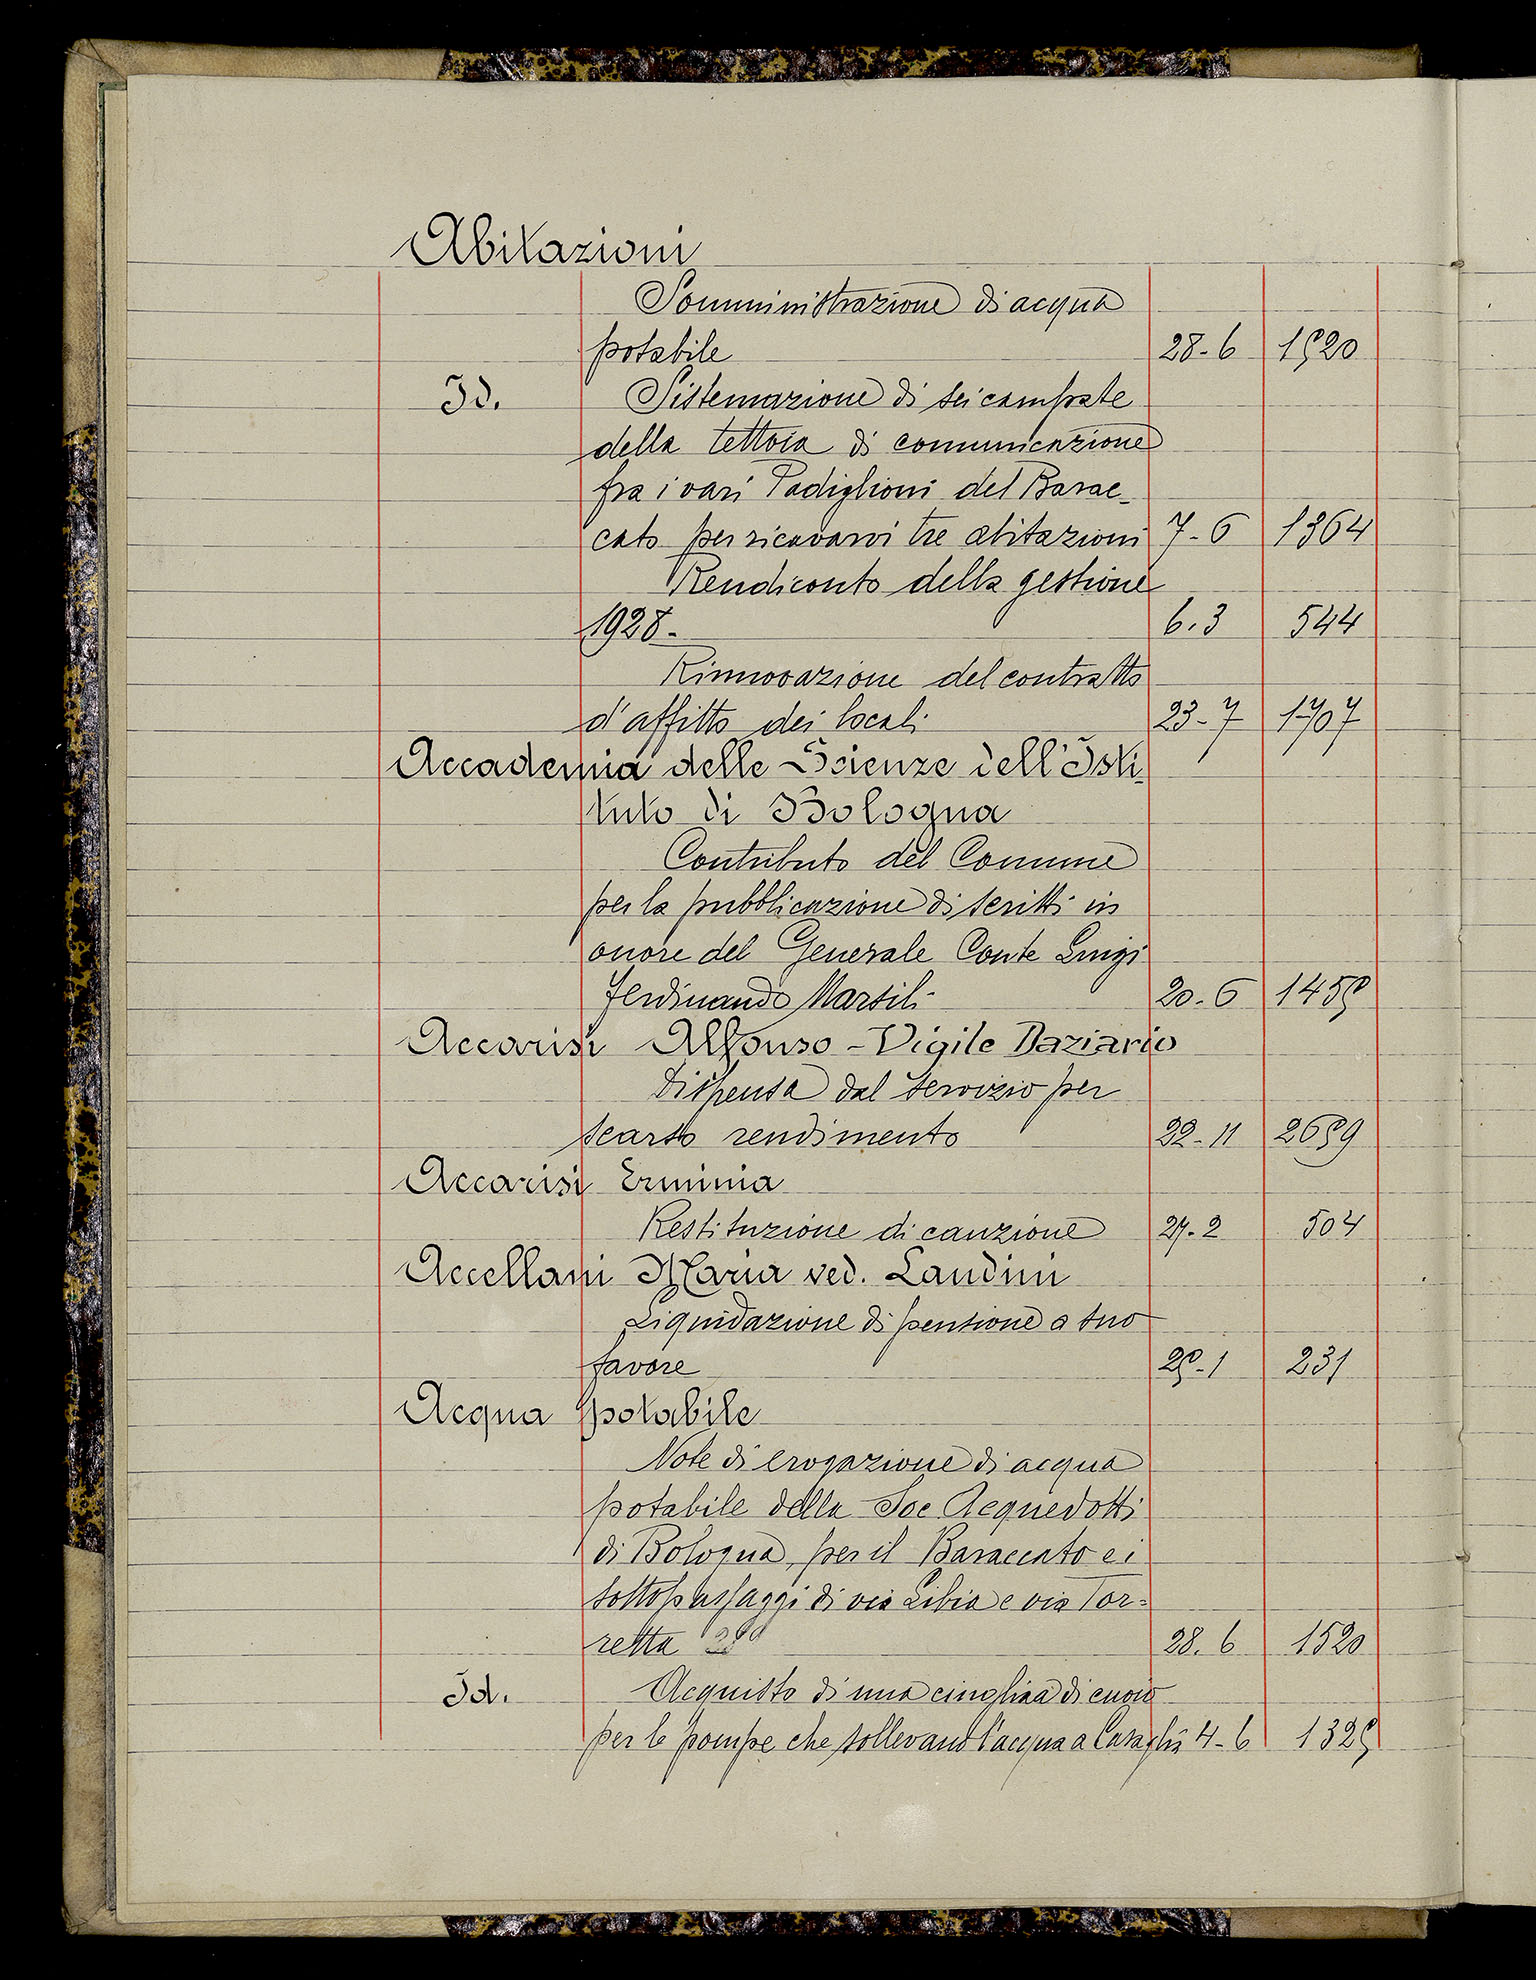 Abitazioni
Somministrazione di acqua
potabile 28-6 1520
Id. Sistemazione di sei campate
della tettoia di comunicazione
fra i vari Padiglioni del Barac-
cato per ricavarvi tre abitazioni 7-6 1364
Rendiconto della gestione
1928- 6.3 544
Rinnovazione del contratto
d'affitto dei locali 23-7 1707
Accademia delle Scienze dell'Isti-
tuto di Bologna
Contributo del Comune
per la pubblicazione di scritti in
onore del Generale Conte Luigi
Ferdinando Marsili 20-6 1455
Accarisi Alfonso - Vigile Daziario
Dispensa dal servizio per
scarso rendimento 22-11 2659
Accarisi Erminia
Restituzione di cauzione 27-2 504
Accellani Maria ved. Landini
Liquidazione di pensione a suo
favore 25-1 231
Acqua potabile
Note di erogazione di acqua
potabile della Soc Acquedotti
di Bologna, per il Baraccato e i
sottopassaggi di via Libia e via Tor=
retta 28. 6 1520
Id. Acquisto di una cinghia di cuoio
per le pompe che sollevano l'acqua a Casaglia 4-6 1325